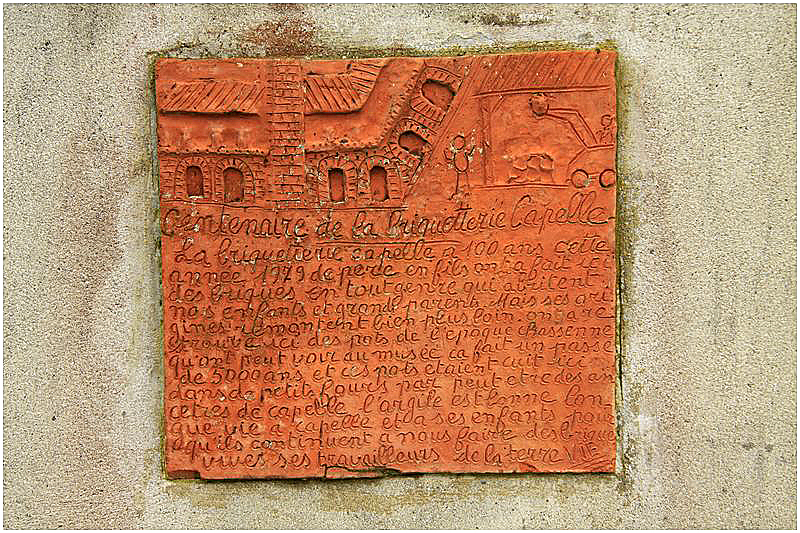 Centenaire de la briquetterie Capelle
La briquetterie capelle a 100 ans cette
année 1979 de pere en fils on a fait ici
des briques en tout genre qui abritent
nos enfants et grand parents Mais ses ori
gines remontent bien plus loin on a re
trouve ici des pots de l'epoque Bassenne
qu'ont peut voir au musée ca fait un passé
de 5000 ans et ces pots etaient cuit ici
dans de petits fours par peut etre des an
cetres de capelle l'argile est bonne lon
gue vie a capelle et a ses enfants pour
qu'ils continuent a nous faire des brique
vives ses travailleurs de la terre